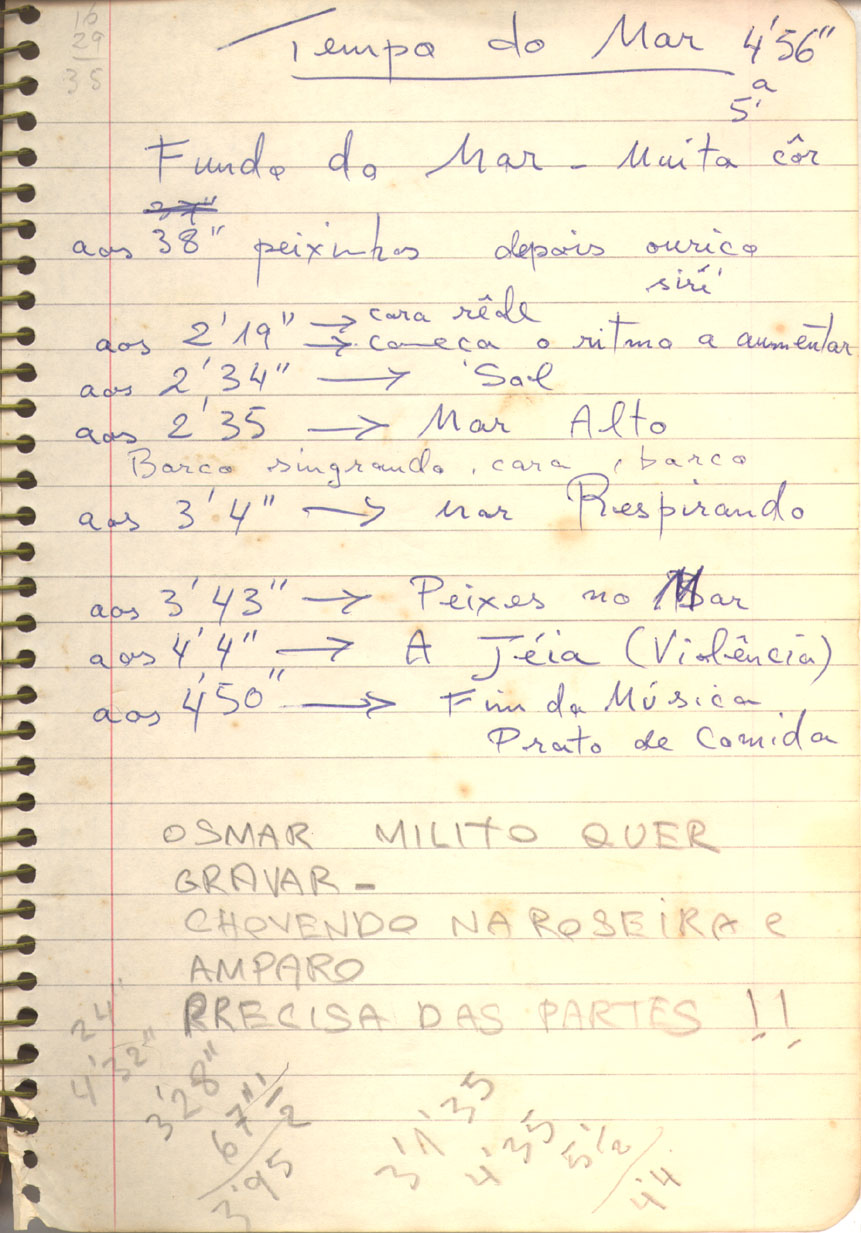 16
29
35
Tempo do Mar 4'56"
a
5'
Fundo do Mar - Muita côr
37"
aos 38" peixinhos depois ouriço
siri
aos 2'19" → cara rêde
→ começa o ritmo a aumentar
aos 2'34" → Sol
aos 2'35 → Mar Alto
Barco singrando, cara, barco
aos 3'4" → mar Respirando
aos 3'43" → Peixes no Mar
aos 4'4" → A Téia (Violência)
aos 4'50" → Fim da Música
Prato de Comida
OSMAR MILITO QUER
GRAVAR -
CHOVENDO NA ROSEIRA e
AMPARO
PRECISA DAS PARTES !!
24"
4'32"
3'28"
67"
2
3'95
3'11'35
4'35
5 1/2
44